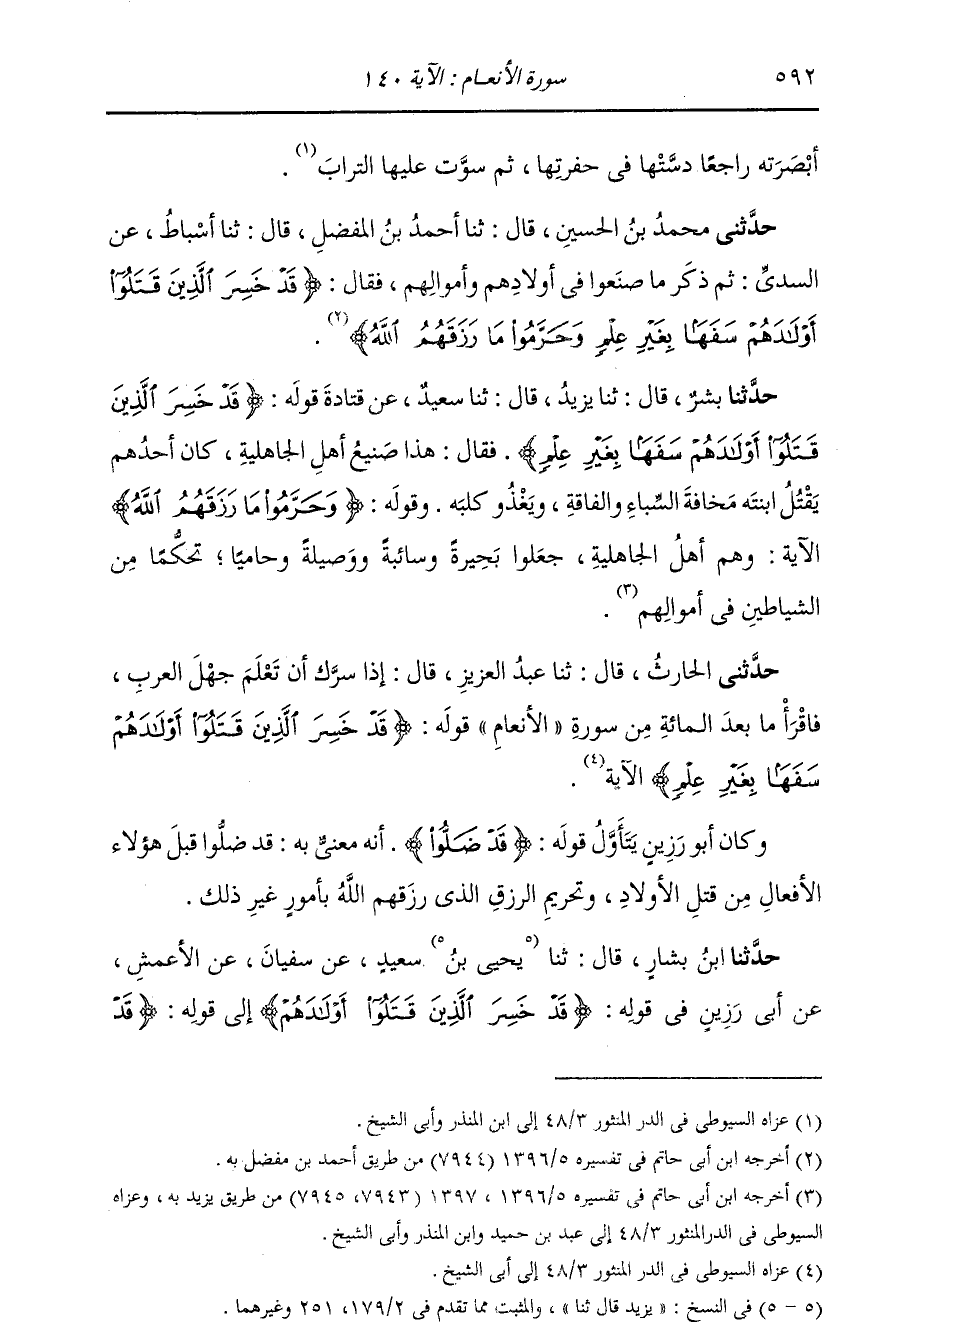 ٥٩٢ سورة الأنعام : الآية ١٤٠
أبْصَرَته راجعًا دسَّتْها فى حفرتِها ، ثم سوَّت عليها الترابَ(١) .
حدَّثنى محمدُ بنُ الحسينِ ، قال : ثنا أحمدُ بنُ المفضلِ ، قال : ثنا أسْباطُ ، عن
السدىِّ : ثم ذكَر ما صنَعوا فى أولادِهم وأموالِهم ، فقال : ﴿ قَدْ خَسِرَ ٱلَّذِينَ قَتَلُوٓا۟
أَوْلَٰدَهُمْ سَفَهًۢا بِغَيْرِ عِلْمٍ وَحَرَّمُوا۟ مَا رَزَقَهُمُ ٱللَّهُ ﴾(٢) .
حدَّثنا بشرٌ ، قال : ثنا يزيدُ ، قال : ثنا سعيدٌ ، عن قتادةَ قولَه : ﴿ قَدْ خَسِرَ ٱلَّذِينَ
قَتَلُوٓا۟ أَوْلَٰدَهُمْ سَفَهًۢا بِغَيْرِ عِلْمٍ ﴾ . فقال : هذا صَنيعُ أهلِ الجاهليةِ ، كان أحدُهم
يَقْتُلُ ابنتَه مَخافةَ السِّباءِ والفاقةِ ، ويَغْذُو كلبَه . وقولَه : ﴿ وَحَرَّمُوا۟ مَا رَزَقَهُمُ ٱللَّهُ ﴾
الآية : وهم أهلُ الجاهليةِ ، جعَلوا بَحِيرةً وسائبةً ووَصيلةً وحاميًا ؛ تحكُّمًا مِن
الشياطينِ فى أموالِهم(٣) .
حدَّثنى الحارثُ ، قال : ثنا عبدُ العزيزِ ، قال : إذا سرَّك أن تَعْلَمَ جهْلَ العربِ ،
فاقْرَأْ ما بعدَ المائةِ مِن سورةِ « الأنعامِ » قولَه : ﴿ قَدْ خَسِرَ ٱلَّذِينَ قَتَلُوٓا۟ أَوْلَٰدَهُمْ
سَفَهًۢا بِغَيْرِ عِلْمٍ ﴾ الآية(٤) .
وكان أبو رَزِينٍ يَتَأَوَّلُ قولَه : ﴿ قَدْ ضَلُّوا۟ ﴾ . أنه معنىٌّ به : قد ضلُّوا قبلَ هؤلاء
الأفعالِ مِن قتلِ الأولادِ ، وتحريمِ الرزقِ الذى رزَقهم اللَّهُ بأمورٍ غيرِ ذلك .
حدَّثنا ابنُ بشارٍ ، قال : ثنا (٥يحيى بنُ٥) سعيدٍ ، عن سفيانَ ، عن الأعمشِ ،
عن أبى رَزِينٍ فى قولِه : ﴿ قَدْ خَسِرَ ٱلَّذِينَ قَتَلُوٓا۟ أَوْلَٰدَهُمْ ﴾ إلى قولِه : ﴿ قَدْ
(١) عزاه السيوطى فى الدر المنثور ٤٨/٣ إلى ابن المنذر وأبى الشيخ .
(٢) أخرجه ابن أبى حاتم فى تفسيره ١٣٩٦/٥ (٧٩٤٤) من طريق أحمد بن مفضل به .
(٣) أخرجه ابن أبى حاتم فى تفسيره ١٣٩٦/٥ ، ١٣٩٧ (٧٩٤٣، ٧٩٤٥) من طريق يزيد به ، وعزاه
السيوطى فى الدرالمنثور ٤٨/٣ إلى عبد بن حميد وابن المنذر وأبى الشيخ .
(٤) عزاه السيوطى فى الدر المنثور ٤٨/٣ إلى أبى الشيخ .
(٥ - ٥) فى النسخ : « يزيد قال ثنا » ، والمثبت مما تقدم فى ١٧٩/٢، ٢٥١ وغيرهما .